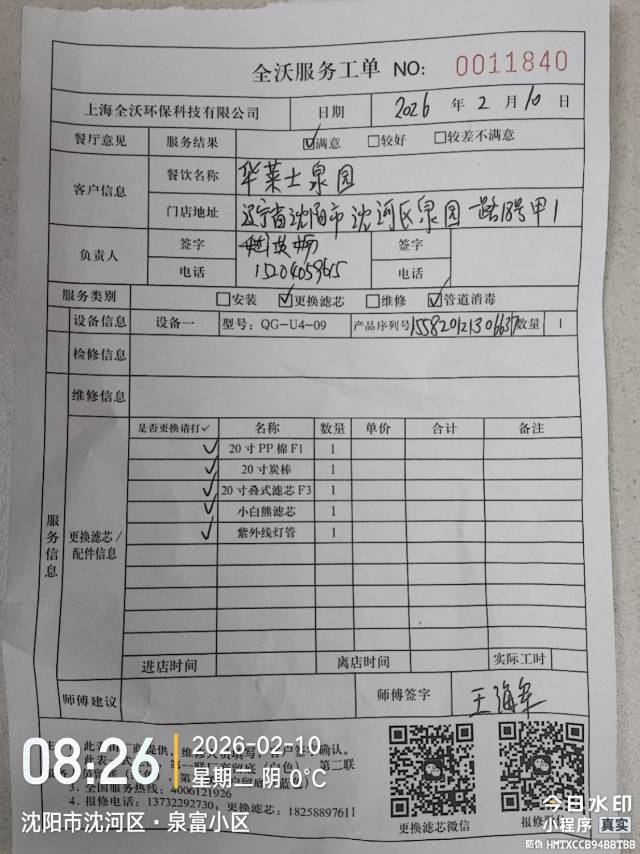 全沃服务工单 NO: 0011840
上海全沃环保科技有限公司 日期 2026 年 2 月 10 日
餐厅意见 服务结果 ☑满意 □较好 □较差不满意
客户信息 餐饮名称 华莱士泉园
门店地址 辽宁省沈阳市沈河区泉园一路18号甲1
负责人 签字 签字
电话 电话
服务类别 □安装 ☑更换滤芯 □维修 ☑管道消毒
设备信息 设备一 型号: QG-U4-09 产品序列号 数量 1
检修信息
维修信息
服务信息
更换滤芯/配件信息
是否更换请打✓ 名称 数量 单价 合计 备注
✓ 20寸PP棉F1 1
✓ 20寸炭棒 1
✓ 20寸叠式滤芯F3 1
✓ 小白熊滤芯 1
✓ 紫外线灯管 1
进店时间 离店时间 实际工时
师傅建议 师傅签字 王海军
3. 全国服务热线: 4006121926
4. 报修电话: 13732292730; 更换滤芯: 18258897611
更换滤芯微信 报修微信
08:26
2026-02-10
星期二 阴 0°C
沈阳市沈河区·泉富小区
今日水印
小程序 真实
防伪 HMTXCCB94BBTBB